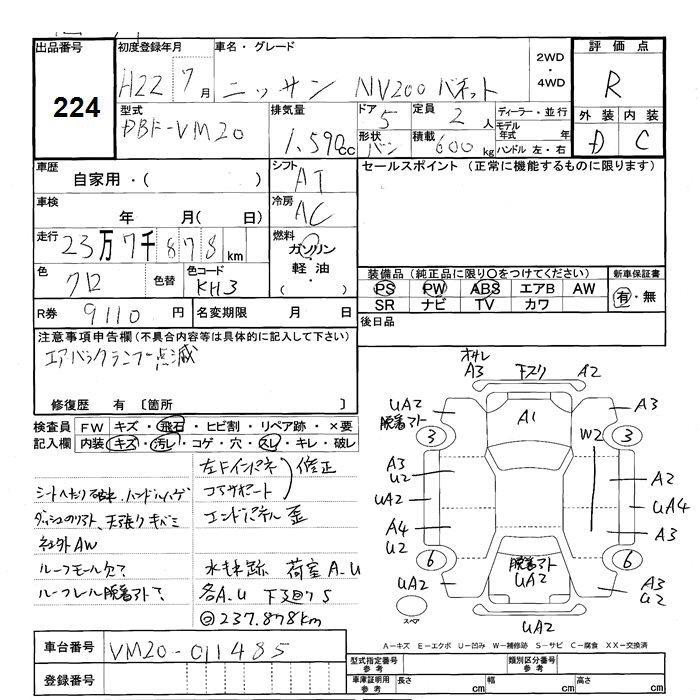 出品番号
224
初度登録年月
H22 7月
車名・グレード
ニッサン NV200 バネット
2WD
・
4WD
評価点
R
外装 内装
D C
型式
DBF-VM20
排気量
1,590cc
ドア 5
形状 バン
定員 2人
積載 600kg
ディーラー・並行
モデル年式 年式
ハンドル 左・右
車歴
自家用・( )
シフト
AT
セールスポイント (正常に機能するものに限ります)
車検
年 月( 日)
冷房
AC
走行
23万7千878km
燃料
ガソリン
軽油・
( ・ )
色
クロ
色替
色コード
KH3
装備品 (純正品に限り○をつけてください)
PS PW ABS エアB AW
SR ナビ TV カワ
新車保証書
有・無
R券 9110円
名変期限 月 日
後日品
注意事項申告欄 (不具合内容等は具体的に記入して下さい)
エアバックランプ点滅
修復歴 有 〔箇所 〕
検査員記入欄
FW キズ・飛石・ヒビ割・リペア跡・×要
内装 キズ・汚レ・コゲ・穴・スレ・キレ・破レ
左Fインパネ
コアサポート
修正
シートヘたり破れ、ハンドルハゲ
エンドパネル歪
ダッシュのリアト、天張りキバミ
社外AW
ルーフモール欠ケ
水もれ跡 荷室A.U
ルーフレール脱着アト?
各A.U 下廻りS
◎237,878km
オサレ
A3
下スリ
A2
UA2
脱着アト
3
A1
A3
3
W2
A3
U2
UA2
A4
U2
A2
UA4
A3
6
6
UA2
脱着アト
UA2
A3
U2
スペア
UA2
A-キズ E-エクボ U-凹み W-補修跡 S-サビ C-腐食 XX-交換済
車台番号
VM20-011485
登録番号
型式指定番号
参考
類別区分番号
参考
車庫証明用
参考
長さ cm
幅 cm
高さ cm